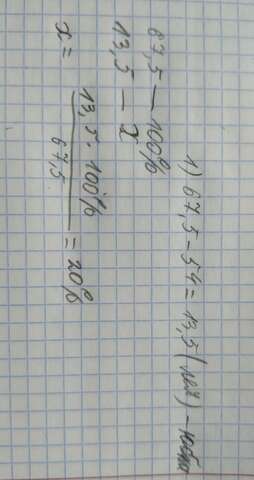 1) 67,5 - 54 = 13,5 (
67,5 — 100%
13,5 — x
x = 13,5 · 100% / 67,5 = 20%